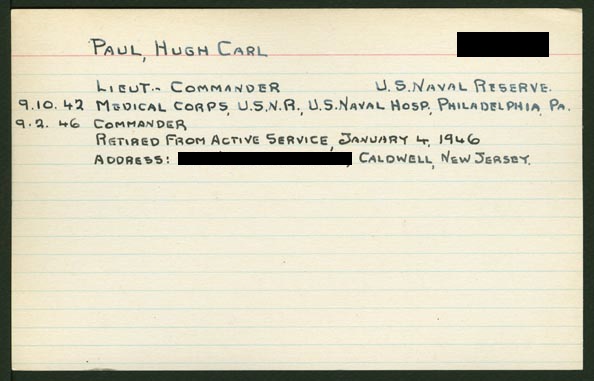 Paul, Hugh Carl
Lieut.- Commander U.S. Naval Reserve.
9.10.42 Medical Corps, U.S.N.R., U.S. Naval Hosp., Philadelphia, Pa.
9.2.46 Commander
Retired From Active Service, January 4, 1946
Address: , Caldwell, New Jersey.